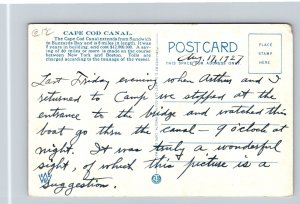 C12
CAPE COD CANAL.
The Cape Cod Canal extends from Sandwich
to Buzzards Bay and is 8 miles in length. It was
7 years in building, and cost $12,000,000. A sav-
ing of 80 miles or more is made on the course
between New York and Boston. Tolls are
charged according to the tonnage of the vessel.
POSTCARD
THIS SPACE FOR ADDRESS ONLY
PLACE
STAMP
HERE
Aug. 11, 1927
Last Friday evening when Arthur and I
returned to Camp we stopped at the
entrance to the bridge and watched this
boat go thru the canal - 9 o'clock at
night. It was truly a wonderful
sight, of which this picture is a
suggestion.